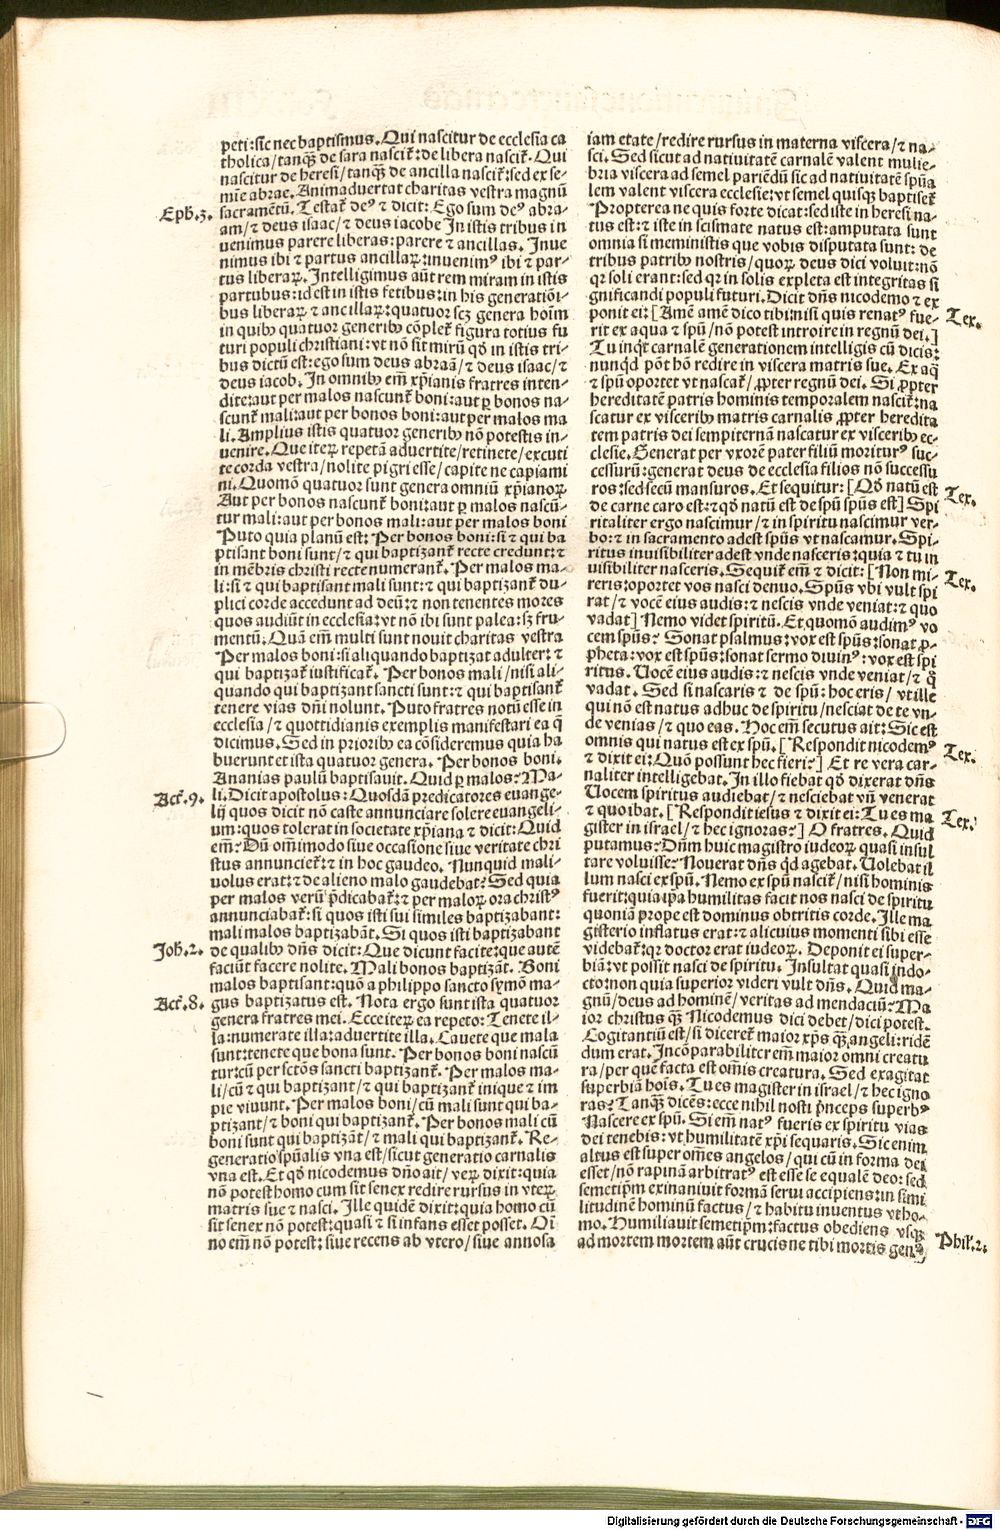 peti:sic nec baptismus. Qui nascitur de ecclesia ca
tholica/tanq̃ȝ de sara nascit᷑:de libera nascit᷑. Qui
nascitur de heresi/tanq̃ȝ de ancilla nascit᷑:sed ex se-
mīe abrae. Animaduertat charitas vestra magnū
Eph̃.3. sacramētū. Testat᷑ deꝰ ⁊ dicit: Ego sum deꝰ abra-
am/⁊ deus isaac/⁊ deus iacob⁊ In istis tribus in
uenimus parere liberas:parere ⁊ ancillas. Inue
nimus ibi ⁊ partus ancillaꝝ:inuenimꝰ ibi ⁊ par-
tus liberaꝝ. Intelligimus aūt rem miram in istis
partubus:id est in istis fetibus:in his generatiōi-
bus liberaꝝ ⁊ ancillaꝝ:quatuor scȝ genera hoīm
in quibꝰ quatuor generibꝰ cōplet᷑ figura totius fu
turi populi christiani:vt nō sit mirū qd̄ in istis tri-
bus dictū est:ego sum deus abraā/⁊ deus isaac/⁊
deus iacob. In omnibꝰ em̄ xp̄ianis fratres inten-
dite:aut per malos nascunt᷑ boni:aut ꝑ bonos na-
scunt᷑ mali:aut per bonos boni:aut per malos ma
li. Amplius istis quatuor generibꝰ nō potestis in-
uenire. Que iteꝝ repetā aduertite/retinete/excuti
te corda vestra/nolite pigri esse/capite ne capiami
ni. Quomō quatuor sunt genera omniū xp̄ianoꝝ
Aut per bonos nascunt᷑ boni:aut ꝑ malos nascū-
tur mali:aut per bonos mali:aut per malos boni
Puto quia planū est: Per bonos boni:si ⁊ qui ba
ptisant boni sunt/⁊ qui baptizant᷑ recte credunt:⁊
in mēbris christi recte numerant᷑. Per malos ma-
li:si ⁊ qui baptisant mali sunt:⁊ qui baptizant᷑ du-
plici corde accedunt ad deū:⁊ non tenentes mores
quos audiūt in ecclesia:vt nō ibi sunt palea:sȝ fru-
mentū. Quā em̄ multi sunt nouit charitas vestra
Per malos boni:si aliquando baptizat adulter:⁊
qui baptizat᷑ iustificat᷑. Per bonos mali/nisi ali-
quando qui baptizant sancti sunt:⁊ qui baptisant᷑
tenere vias dn̄i nolunt. Puto fratres notū esse in
ecclesia/⁊ quottidianis exemplis manifestari ea q̄
dicimus. Sed in prioribꝰ ea cōsideremus quia ha
buerunt et ista quatuor genera. Per bonos boni.
Ananias paulū baptisauit. Quid ꝑ malos? Ma-
Act᷑.9. li. Dicit apostolus: Quosdā predicatores euange-
lij quos dicit nō caste annunciare solere euangeli-
um:quos tolerat in societate xp̄iana ⁊ dicit: Quid
em̄? Dū om̄imodo siue occasione siue veritate chri
stus annunciet᷑:⁊ in hoc gaudeo. Nunquid mali-
uolus erat:⁊ de alieno malo gaudebat? Sed quia
per malos verū p̄dicabat᷑:⁊ per maloꝝ ora christꝰ
annunciabat᷑:si quos isti sui similes baptizabant:
mali malos baptizabāt. Si quos isti baptizabant
Joh̄.2. de qualibꝰ dn̄s dicit: Que dicunt facite:que autē
faciūt facere nolite. Mali bonos baptizāt. Boni
malos baptisant:quō a philippo sancto symō ma-
Act᷑.8. gus baptizatus est. Nota ergo sunt ista quatuor
genera fratres mei. Ecce iteꝝ ea repeto: Tenete il-
la:numerate illa:aduertite illa. Cauete que mala
sunt:tenete que bona sunt. Per bonos boni nascū
tur:cū per sctōs sancti baptizant᷑. Per malos ma-
li/cū ⁊ qui baptizant/⁊ qui baptizant᷑ inique ⁊ im
pie viuunt. Per malos boni/cū mali sunt qui ba-
ptizant/⁊ boni qui baptizant᷑. Per bonos mali cū
boni sunt qui baptizāt/⁊ mali qui baptizant᷑. Re-
generatio sp̄ualis vna est/sicut generatio carnalis
vna est. Et qd̄ nicodemus dn̄o ait/veꝝ dixit:quia
nō potest homo cum sit senex redire rursus in vteꝝ
matris sue ⁊ nasci. Ille quidē dixit:quia homo cū
sit senex nō potest:quasi ⁊ si infans esset posset. Oī
no em̄ nō potest:siue recens ab vtero/siue annosa
iam etate/redire rursus in materna viscera/⁊ na-
sci. Sed sicut ad natiuitatē carnalē valent mulie-
bria viscera ad semel pariēdū sic ad natiuitatē sp̄ua
lem valent viscera ecclesie:vt semel quisqȝ baptiset᷑
Propterea ne quis forte dicat:sed iste in heresi na-
tus est:⁊ iste in scismate natus est:amputata sunt
omnia si meministis que vobis disputata sunt: de
tribus patribꝰ nostris/quoꝝ deus dici voluit:nō
qꝛ soli erant:sed qꝛ in solis expleta est integritas si
gnificandi populi futuri. Dicit dn̄s nicodemo ⁊ ex
ponit ei: [Amē amē dico tibi:nisi quis renatꝰ fue- Tex.
rit ex aqua ⁊ sp̄u/nō potest introire in regnū dei.]
Tu inq̄t carnalē generationem intelligis cū dicis:
nunqd̄ pōt hō redire in viscera matris sue. Ex aq̄
⁊ sp̄u oportet vt nascat᷑/ꝓpter regnū dei. Si ꝓpter
hereditatē patris hominis temporalem nascit᷑:na
scatur ex visceribꝰ matris carnalis ꝓpter heredita
tem patris dei sempiternā nascatur ex visceribꝰ ec-
clesie. Generat per vxorē pater filiū morituꝝ suc-
cessurū:generat deus de ecclesia filios nō successu
ros:sed secū mansuros. Et sequitur: [Qd̄ natū est Tex.
de carne caro est:⁊ qd̄ natū est de sp̄u sp̄us est] Spi
ritaliter ergo nascimur/⁊ in spiritu nascimur ver-
bo:⁊ in sacramento adest sp̄us vt nascamur. Spi-
ritus inuisibiliter adest vnde nasceris:quia ⁊ tu in
uisibiliter nasceris. Sequit᷑ em̄ ⁊ dicit: [Non mi- Tex.
reris:oportet vos nasci denuo. Sp̄us vbi vult spi
rat/⁊ vocē eius audis:⁊ nescis vnde veniat:⁊ quo
vadat] Nemo videt spiritū. Et quomō audimꝰ vo
cem sp̄us? Sonat psalmus:vox est sp̄us:sonat ꝓ-
pheta:vox est sp̄us:sonat sermo diuinꝰ:vox est spi
ritus. Uocē eius audis:⁊ nescis vnde veniat/⁊ q̊
vadat. Sed si nascaris ⁊ de sp̄u:hoc eris/vt ille
qui nō est natus adhuc de spiritu/nesciat de te vn-
de venias/⁊ quo eas. Hoc em̄ secutus ait: Sic est
omnis qui natus est ex sp̄u. [Respondit nicodemꝰ Tex.
⁊ dixit ei: Quō possunt hec fieri?] Et re vera car-
naliter intelligebat. In illo fiebat qd̄ dixerat dn̄s
Uocem spiritus audiebat/⁊ nesciebat vn̄ venerat
⁊ quo ibat. [Respondit iesus ⁊ dixit ei: Tu es ma Tex.
gister in israel/⁊ hec ignoras?] O fratres. Quid
putamus? Dn̄m huic magistro iudeoꝝ quasi insul
tare voluisse? Nouerat dn̄s qd̄ agebat. Uolebat il
lum nasci ex sp̄u. Nemo ex sp̄u nascit᷑/nisi hominis
fuerit:quia ip̄a humilitas facit nos nasci de spiritu
quoniā prope est dominus obtritis corde. Ille ma
gisterio inflatus erat:⁊ alicuius momenti sibi esse
videbat᷑:qꝛ doctor erat iudeoꝝ. Deponit ei super-
biā:vt possit nasci de spiritu. Insultat quasi indo-
cto:non quia superior videri vult dn̄s. Quid ma-
gnū/deus ad hominē/veritas ad mendaciū? Ma
ior christus q̃ȝ Nicodemus dici debet/dici potest.
Cogitantiū est/si diceret᷑ maior xp̄s q̃ȝ angeli:ridē
dum erat. Incōparabiliter em̄ maior omni creatu
ra/per quē facta est om̄is creatura. Sed exagitat
superbiā hoīs. Tu es magister in israel/⁊ hec igno
ras? Tanq̃ȝ dicēs:ecce nihil nosti p̄nceps superbꝰ
Nascere ex sp̄u. Si em̄ natꝰ fueris ex spiritu vias
dei tenebis:vt humilitatē xp̄i sequaris. Sic enim
altus est super om̄es angelos/qui cū in forma dei
esset/nō rapinā arbitratꝰ est esse se equalē deo:sed
semetip̄m exinaniuit formā serui accipiens:in simi
litudinē hominū factus/⁊ habitu inuentus vt ho-
mo. Humiliauit semetip̄m:factus obediens vsqȝ Phil᷑.2.
ad mortem mortem aūt crucis ne tibi mortis genꝰ
Digitalisierung gefördert durch die Deutsche Forschungsgemeinschaft - DFG